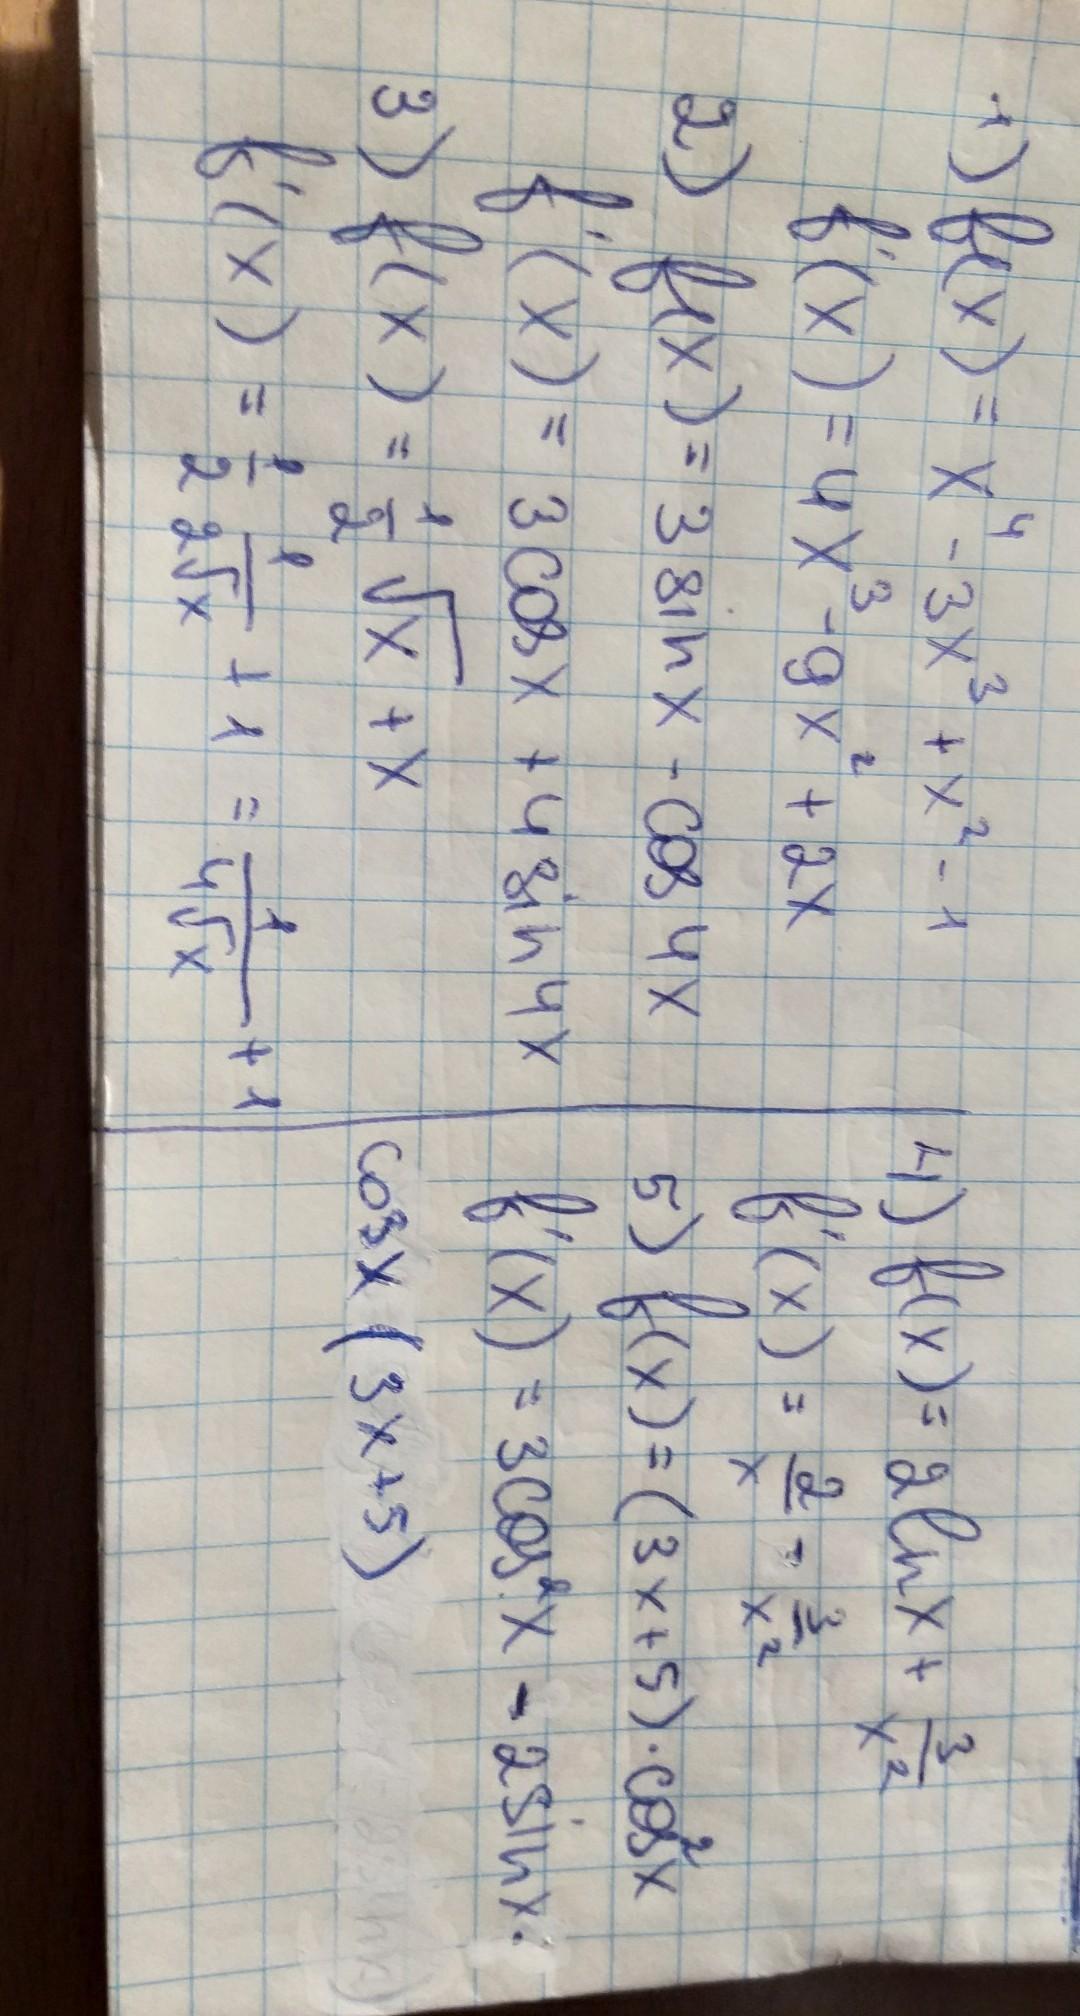 1) f(x) = x⁴ - 3x³ + x² - 1
f'(x) = 4x³ - 9x² + 2x
2) f(x) = 3 sin x - cos 4x
f'(x) = 3 cos x + 4 sin 4x
3) f(x) = 1/2 √x + x
f'(x) = 1/2 1/2√x + 1 = 1/4√x + 1
4) f(x) = 2 ln x + 3/x²
f'(x) = 2/x - 3/x²
5) f(x) = (3x+5) · cos² x
f'(x) = 3 cos² x - 2 sin x ·
cos x (3x+5)